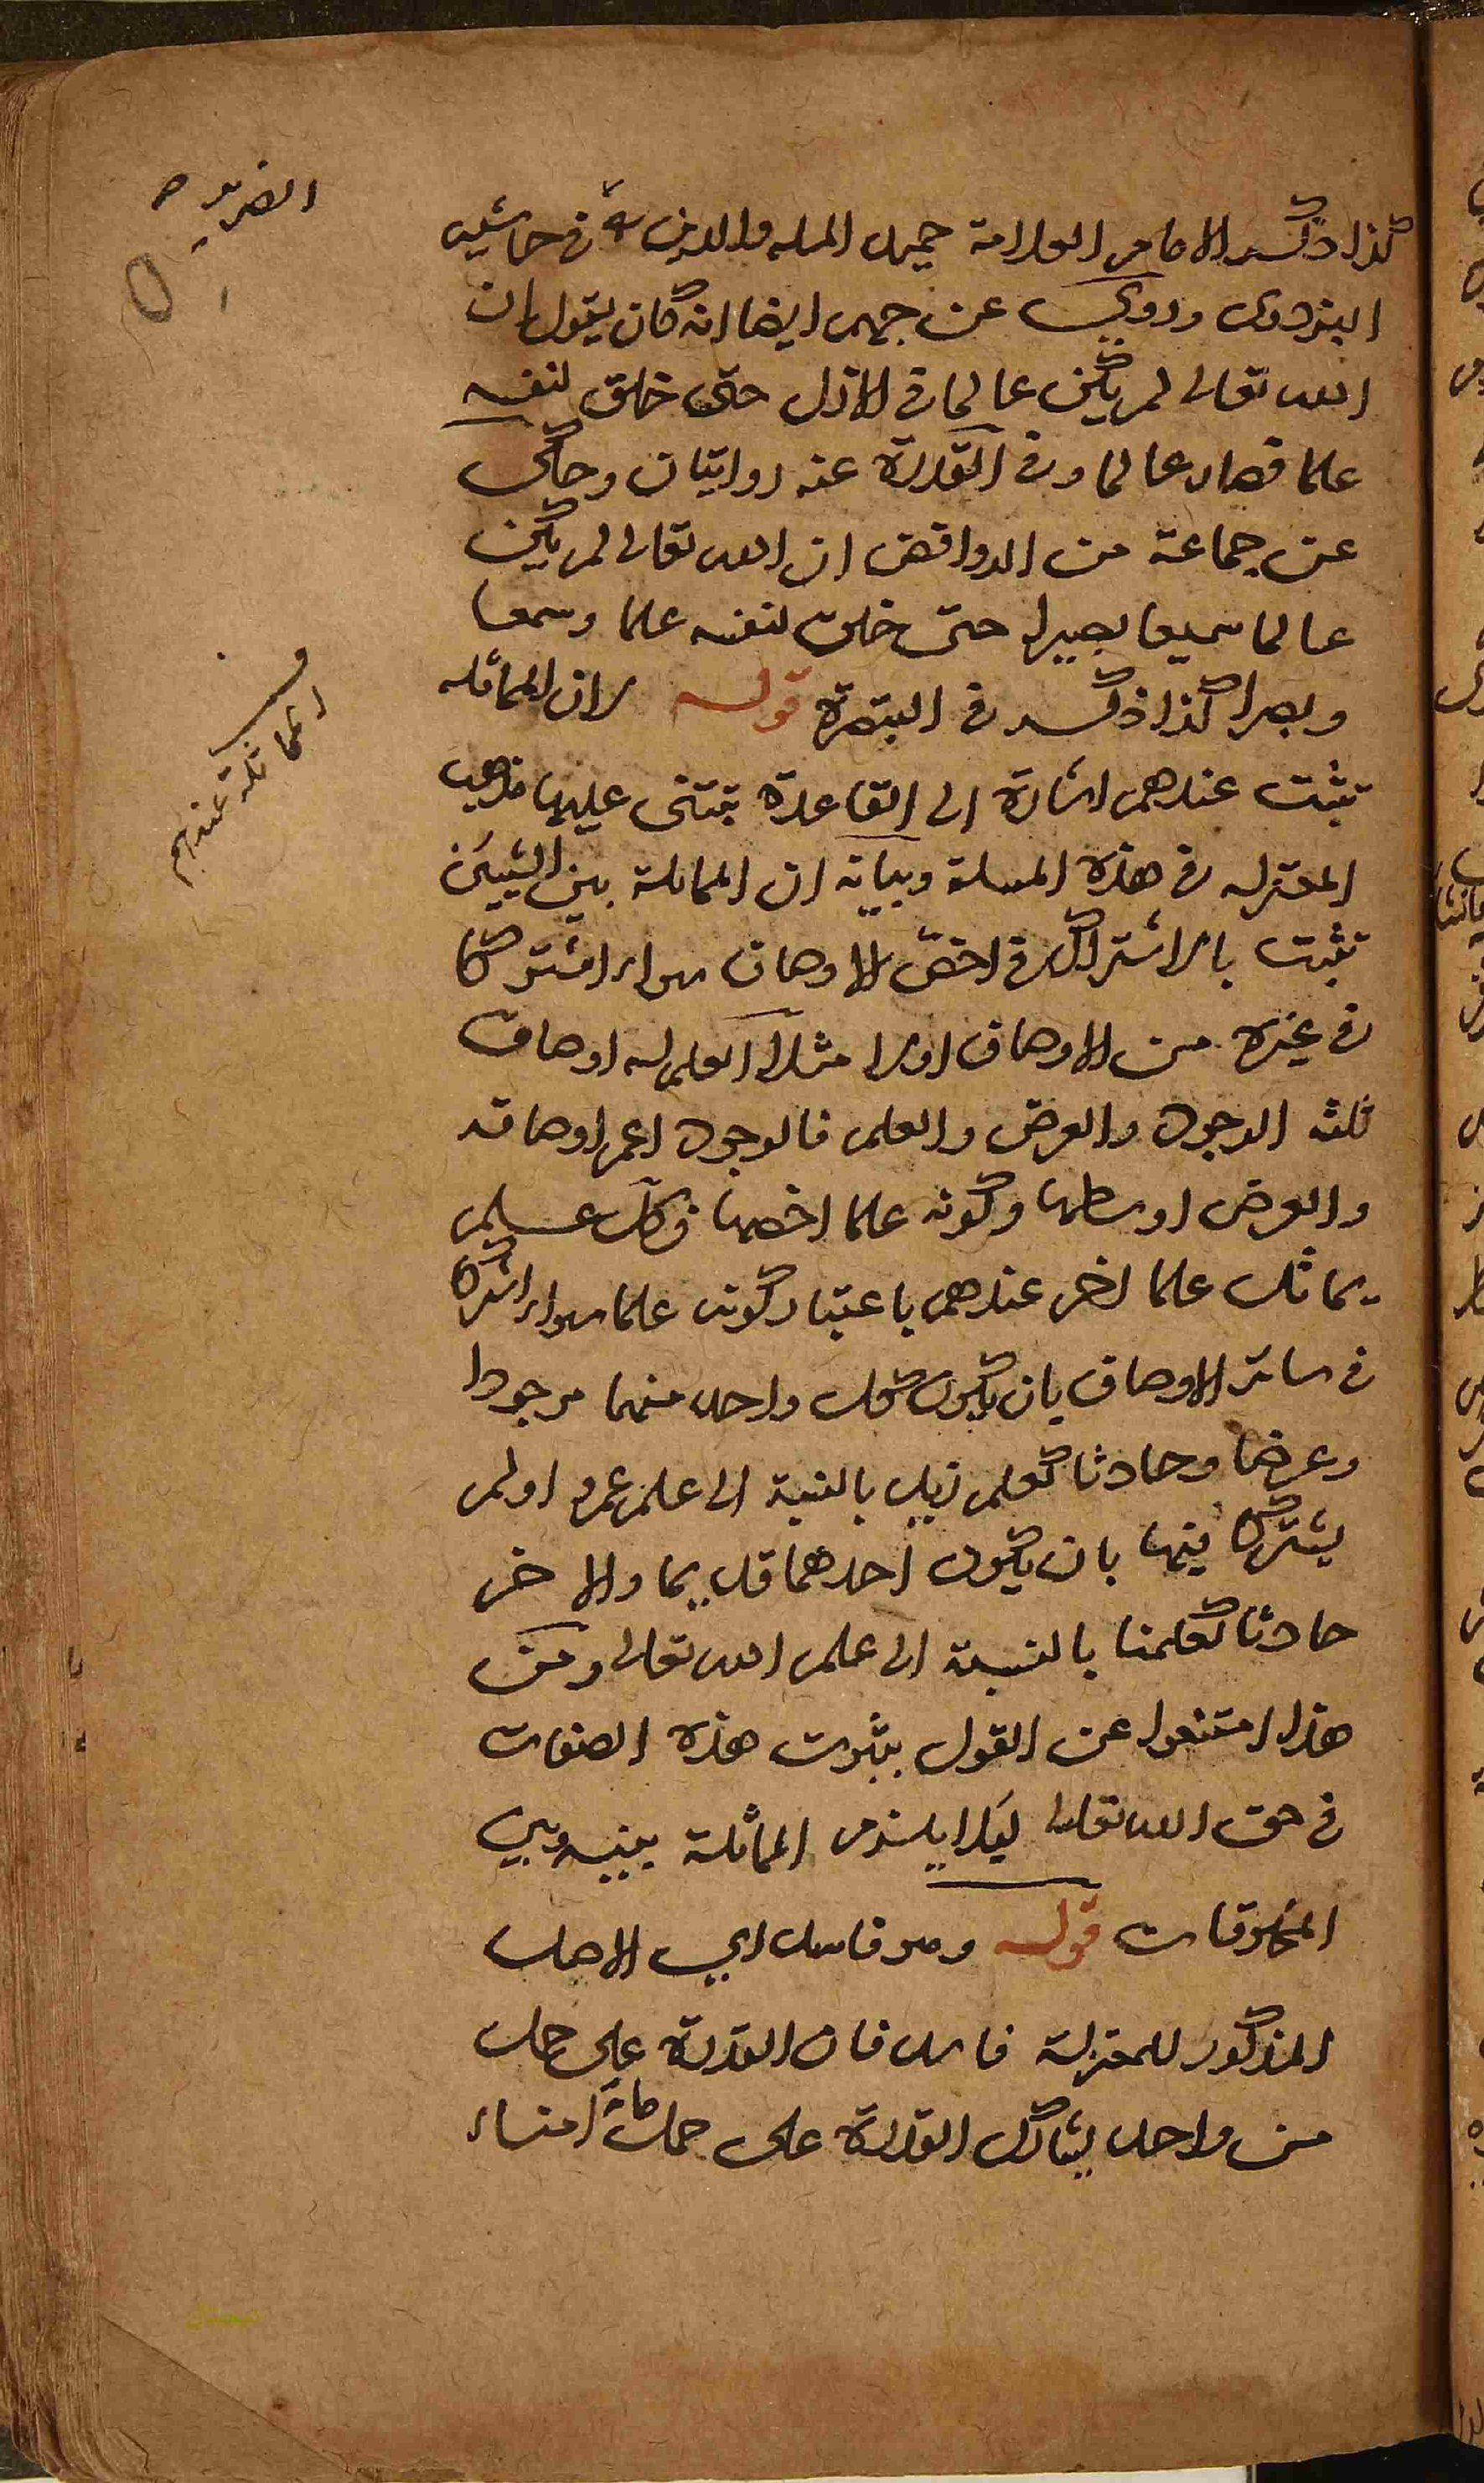 كذا ذكر الامام العلامة حميد الملة والدين في حاشية
البزدوى وروي عن جهم ايضا انه كان يقول ان
الله تعالى لم يكن عالما في الازل حتى خلق لنفسه
علما فصار عالما وفي القدرة عنه روايتان وحكى
عن جماعة من الروافض ان الله تعالى لم يكن
عالما سميعا بصيرا حتى خلق لنفسه علما وسمعا
وبصرا كذا ذكر في التبصرة قوله لان المماثلة
تثبت عندهم اشارة الى القاعدة تبتنى عليها مذهب
المعتزلة في هذه المسلة وبيانه ان المماثلة بين الشيئين
تثبت بالاشتراك في اخص الاوصاف سواء اشتركا
في غيره من الاوصاف اولا مثلا العلم له اوصاف
ثلثة الوجود والعرض والعلم فالوجود اعم اوصافه
والعرض اوسطها وكونه علما اخصها فكل علم
يماثل علما اخر عندهم باعتبار كونه علما سواء اشتركا
في سائر الاوصاف بان يكون كل واحد منهما موجودا
وعرضا وحادثا كعلم زيد بالنسبة الى علم عمرو اولم
يشتركا فيها بان يكون احدهما قديما والاخر
حادثا كعلمنا بالنسبة الى علم الله تعالى ومن
هذا امتنعوا عن القول بثبوت هذه الصفات
في حق الله تعالى ليلا يلزم المماثلة بينه وبين
المخلوقات قوله وهو فاسد اي الاصل
المذكور للمعتزلة فاسد فان القدرة على حمل
من واحد يشارك القدرة على حمل مائة امناء
المماثلة عندهم